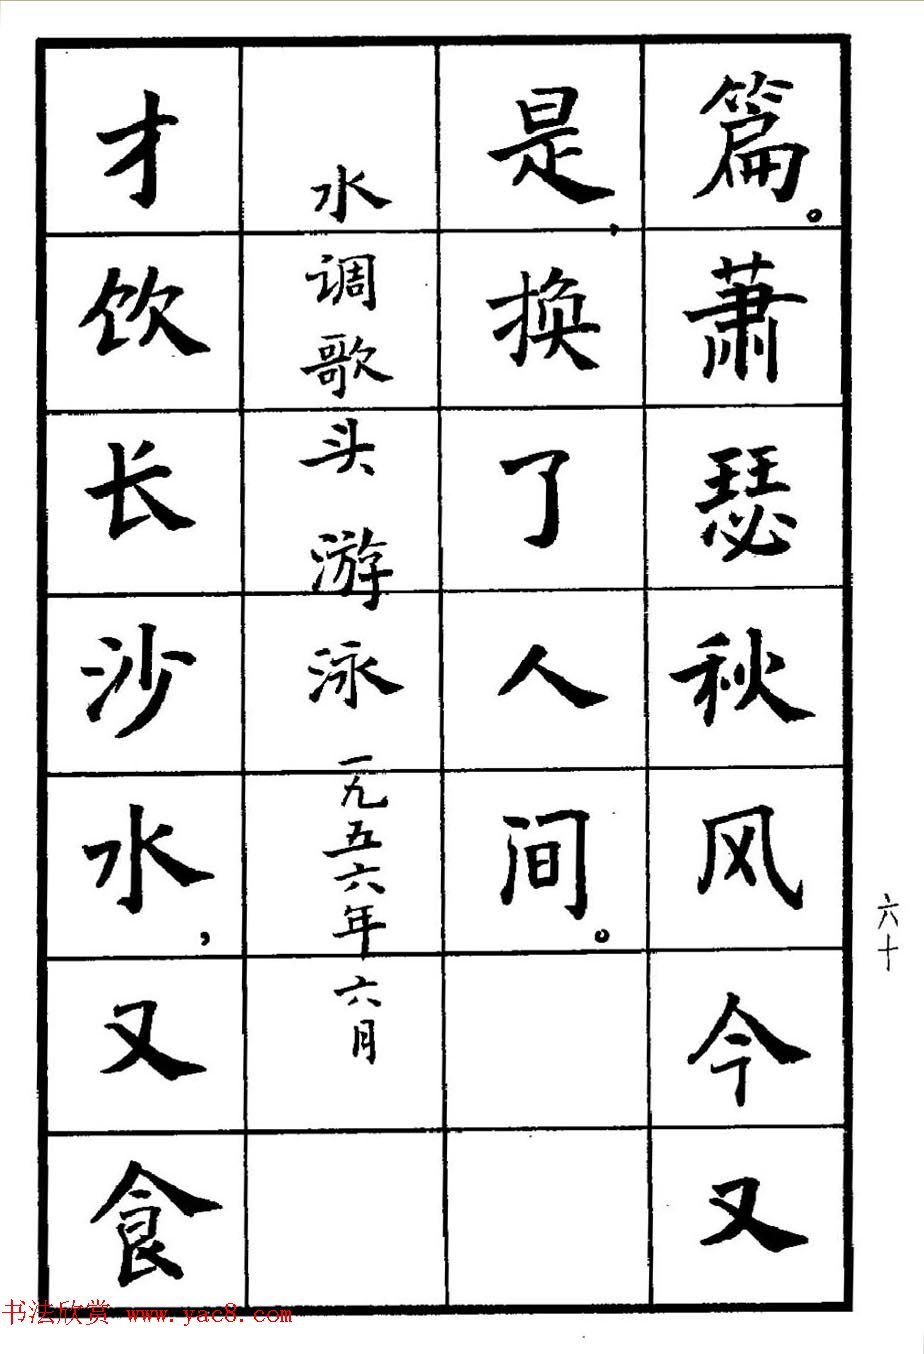 篇。萧瑟秋风今又
是，换了人间。
水调歌头 游泳 一九五六年 六月
才饮长沙水，又食
六十
书法欣赏 www.yac8.com